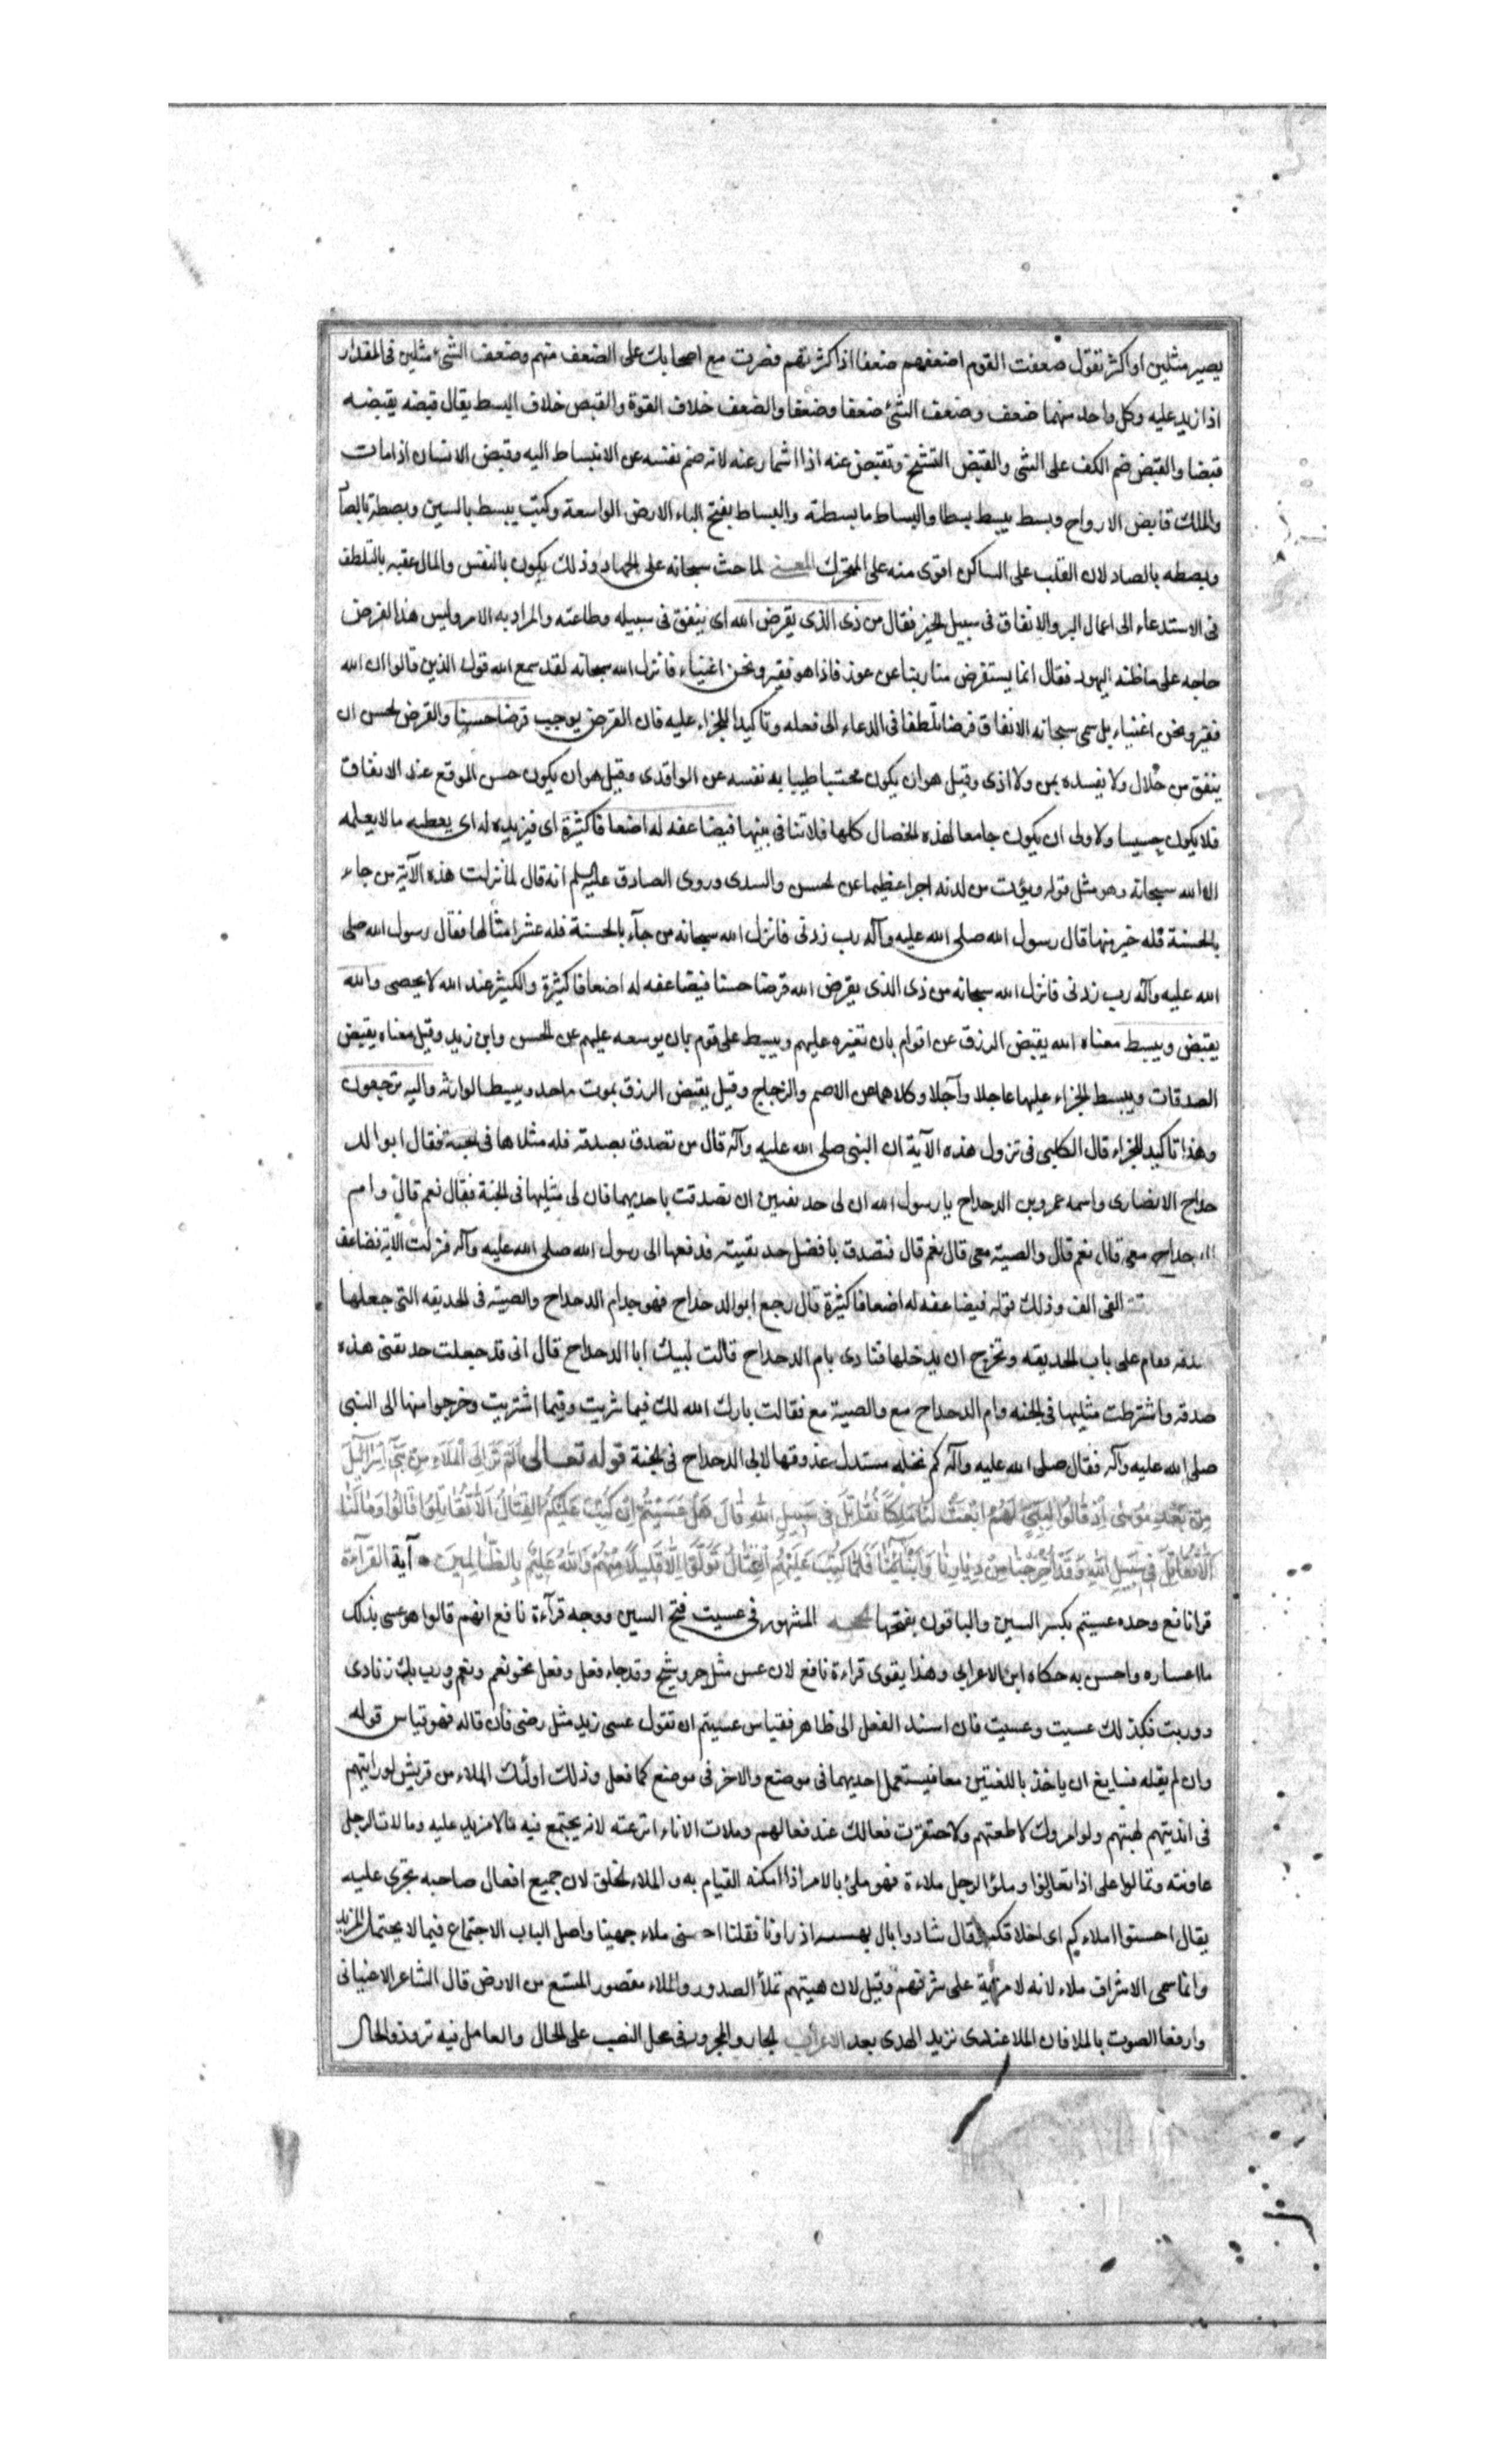 يصير مثلين او اكثر تقول ضعفت القوم اضعفهم ضعفا اذا كثرتهم فصرت مع اصحابك على الضعف منهم وضعف الشئ مثلين في المقدار
اذا زيد عليه وكل واحد منهما ضعف وضعف الشئ ضعفا وضعفا والضعف خلاف القوة والقبض خلاف البسط يقال قبضه يقبضه
قبضا والقبض ضم الكف على الشى والقبض التشنج وتقبض عنه اذا اشمار عنه لانه ضم نفسه عن الانبساط اليه وقبض الانسان اذا مات
والملك قابض الارواح وبسط يبسط بسطا والبساط ما بسطته والبساط بفتح الباء الارض الواسعة وكتب يبسط بالسين وبصطة بالصاد
وبصطه بالصاد لان القلب على الساكن اقوى منه على المتحرك المعنى لما حث سبحانه على الجهاد وذلك يكون بالنفس والمال عقبه بالتلطف
فى الاستدعاء الى اعمال البر والانفاق فى سبيل الخير فقال من ذى الذى يقرض الله اى ينفق فى سبيله وطاعته والمراد به الامر وليس هذا القرض
حاجه على ما ظنه اليهود فقال انما يستقرض منا ربنا عن عوز فاذا هو فقير ونحن اغنياء فانزل الله سبحانه لقد سمع الله قول الذين قالوا ان الله
فقير ونحن اغنياء بل سمى سبحانه الانفاق قرضا تلطفا فى الدعاء الى فعله وتاكيدا للجزاء عليه فان القرض يوجب قرضا حسنا والقرض الحسن ان
ينفق من حلال ولا يفسده بمن ولا اذى وقيل هو ان يكون محتسبا طيبا به نفسه عن الواقدى وقيل هو ان يكون حسن الموقع عند الانفاق
فلا يكون خسيسا ولاولى ان يكون جامعا لهذه الخصال كلها فلا تنافى بينها فيضاعفه له اضعافا كثيرة اى فيزيده له اى يعطيه ما لا يعلمه
الا الله سبحانه وهو مثل قوله ويؤت من لدنه اجرا عظيما عن الحسن والسدى وروى الصادق عليه السلم انه قال لما نزلت هذه الآية من جاء
بالحسنة فله خير منها قال رسول الله صلى الله عليه وآله رب زدنى فانزل الله سبحانه من جآء بالحسنة فله عشر امثالها فقال رسول الله صلى
الله عليه وآله رب زدنى فانزل الله سبحانه من ذى الذى يقرض الله قرضا حسنا فيضاعفه له اضعافا كثيرة والكثير عند الله لا يحصى والله
يقبض ويبسط معناه الله يقبض الرزق عن اقوام بان يقتره عليهم ويبسط على قوم بان يوسعه عليهم عن الحسن وابن زيد وقيل معناه يقبض
الصدقات ويبسط الجزاء عليها عاجلا وآجلا وكلاهما عن الاصم والزجاج وقيل يقبض الرزق بموت واحد ويبسط لوارثه واليه ترجعون
وهذا تاكيد للجزاء قال الكلبى فى نزول هذه الآية ان النبى صلى الله عليه وآله قال من تصدق بصدقة فله مثلاها فى الجنة فقال ابوالد
حداح الانصارى واسمه عمرو بن الدحداح يا رسول الله ان لى حديقتين ان تصدقت باحديهما فان لى مثليها فى الجنة فقال نعم قال وام
الدحداح معى قال نعم قال والصبية معى قال نعم قال فتصدق بافضل حديقتيه فدفعها الى رسول الله صلى الله عليه وآله فنزلت الآية فضاعف
الفى الف وذلك قوله فيضاعفه له اضعافا كثيرة قال رجع ابوالدحداح فوجد ام الدحداح والصبية فى الحديقه التى جعلها
صدقه فقام على باب الحديقه وتحرج ان يدخلها فنادى يام الدحداح قالت لبيك ابا الدحداح قال انى قد جعلت حديقتى هذه
صدقه واشترطت مثليها فى الجنه وام الدحداح مع والصبية مع فقالت بارك الله لك فيما شريت وفيما اشتريت وخرجوا منها الى النبى
صلى الله عليه وآله فقال صلى الله عليه وآله كم نخله متدل عذوقها لابى الدحداح فى الجنة قوله تعالى أَلَمْ تَرَ إِلَى الْمَلَاءِ مِنْ بَنِي إِسْرَائِيلَ
مِنْ بَعْدِ مُوسٰى إِذْ قَالُوا لِنَبِيٍّ لَهُمُ ابْعَثْ لَنَا مَلِكًا نُقَاتِلْ فِي سَبِيلِ اللّٰهِ قَالَ هَلْ عَسَيْتُمْ إِنْ كُتِبَ عَلَيْكُمُ الْقِتَالُ أَلَّا تُقَاتِلُوا قَالُوا وَمَا لَنَا
أَلَّا نُقَاتِلَ فِي سَبِيلِ اللّٰهِ وَقَدْ أُخْرِجْنَا مِنْ دِيَارِنَا وَأَبْنَائِنَا فَلَمَّا كُتِبَ عَلَيْهِمُ الْقِتَالُ تَوَلَّوْا إِلَّا قَلِيلًا مِنْهُمْ وَاللّٰهُ عَلِيمٌ بِالظَّالِمِينَ آية القرآءة
قرا نافع وحده عسيتم بكسر السين والباقون بفتحها الحجه المشهور فى عسيت فتح السين ووجه قرآءة نافع انهم قالوا هو عسى بذلك
ما اعساره واحسن به حكاه ابن الاعرابى وهذا يقوى قراءة نافع لان عس مثل حر وشج وقد جاء فعل وفعل نحو نعم ونعم ورب بك زنادى
ووريت فكذلك عسيت وعسيت فان اسند الفعل الى ظاهر فقياس عسيتم ان تقول عسى زيد مثل رضى فان قاله فهو قياس قوله
وان لم يقله فسايغ ان ياخذ باللغتين معا فيستعمل احديهما فى موضع والاخر فى موضع كما فعل وذلك اولئك الملاء من قريش لو رايتهم
فى انديتهم لهبتهم ولو امروك لاطعتهم ولاحتقرت فعالك عند فعالهم وملات الاناء اترعته لانه يجتمع فيه ما لا مزيد عليه ومالات الرجل
عاونته وتمالوا على اذا تعاونوا وملؤ الرجل ملاءة فهو ملئ بالامر اذا امكنه القيام به والملاء الخلق لان جميع افعال صاحبه تجرى عليه
يقال احسنوا املاءكم اى اخلاقكم قال تنادوا يال بهسه اذ راونا فقلنا احسنى ملاء جهينا واصل الباب الاجتماع فيما لا يحتمل المزيد
وانما سمى الاشراف ملاء لانه لا مزية على شرفهم وقيل لان هيبتهم تملأ الصدور والملاء مقصور المتسع من الارض قال الشاعر الاغنيانى
وارفعا الصوت بالملا فان الملا عندى تزيد المدى بعدا الاعراب الجار والمجرور فى محل النصب على الحال والعامل فيه تر وذو الحال